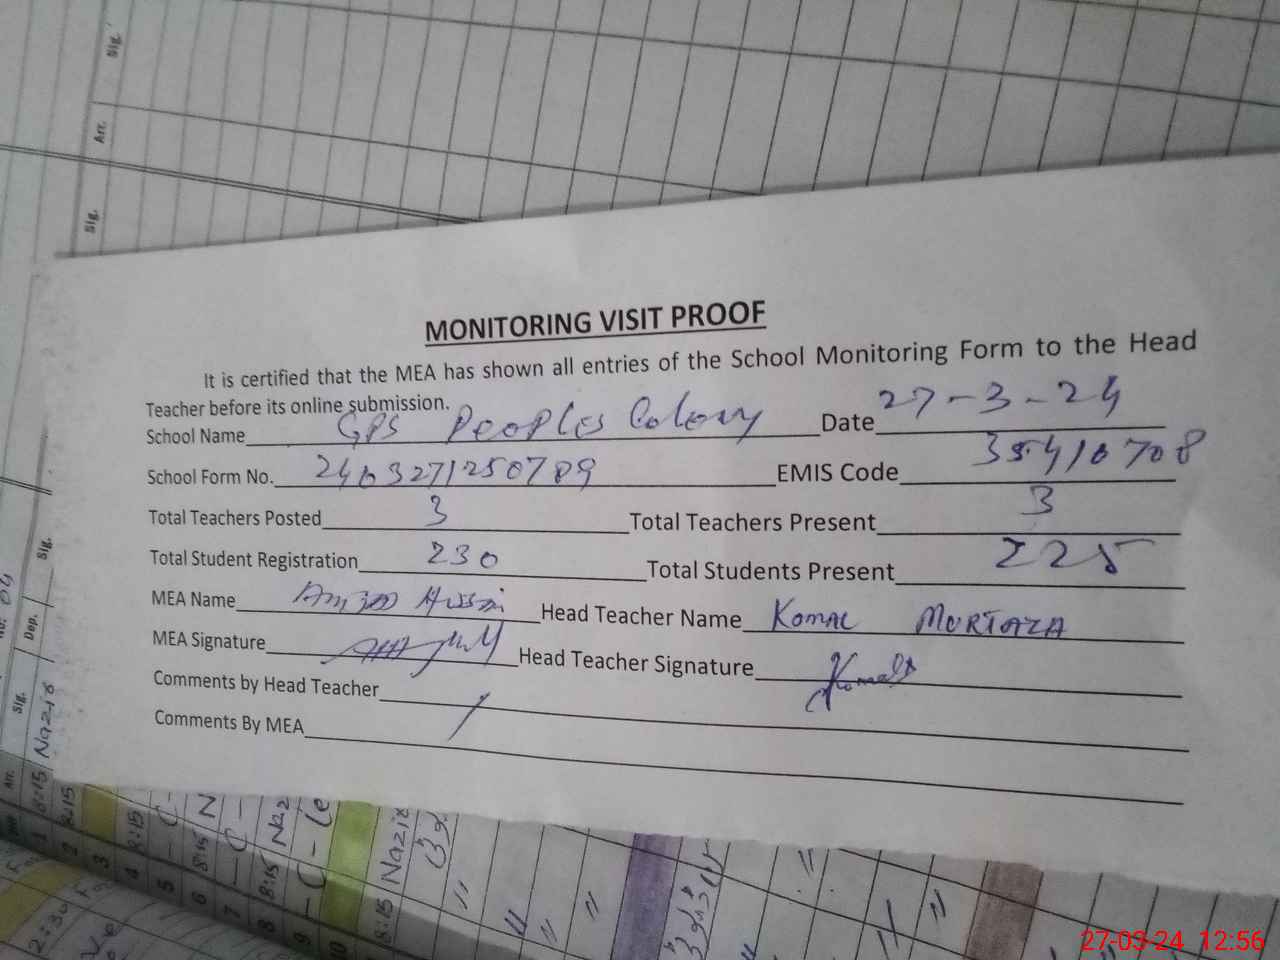 MONITORING VISIT PROOF
It is certified that the MEA has shown all entries of the School Monitoring Form to the Head
Teacher before its online submission.
School Name GPS Peoples Colony Date 27-3-24
School Form No. 2403271250789 EMIS Code 35410708
Total Teachers Posted 3 Total Teachers Present 3
Total Student Registration 230 Total Students Present 225
MEA Name Amjad Hussain Head Teacher Name KOMAL MURTAZA
MEA Signature Head Teacher Signature Komal
Comments by Head Teacher
Comments By MEA
Sig.
Arr.
Sig.
Sig.
Dep.
Sig.
Arr.
8:15 Nazir
8:15
1 2 3 4 5 6 7 8 9 10
8:15 N
8:15 Naz
8:15 Nazir
12:30
27-03-24 12:56